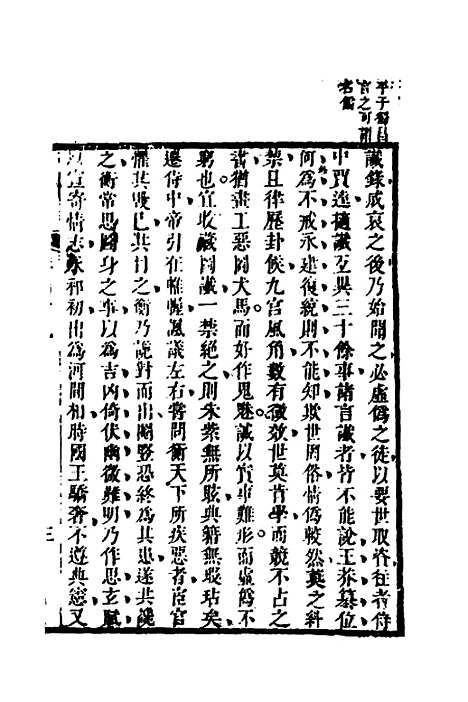 平子獨目
官之可謂
名儒
讖錄成哀之後乃始聞之必虛僞之徒以要世取資往者侍
中賈逵摘讖互異三十餘事諸言讖者皆不能說王莽篡位
何爲不戒永建復統則不能知欺世罔俗情僞較然莫之糾
禁且律歷卦候九宮風角數有徵效世莫肯學而競不占之
書猶畫工惡圖犬馬而好作鬼魅誠以實事難形而虛僞不
窮也宜收讖圖讖一禁絕之則朱紫無所眩典籍無瑕玷矣
遷侍中帝引在帷幄諷議左右嘗問衡天下所疾惡者宦官
懼其毀已共目之衡乃詭對而出閹豎恐終爲其患遂共讒
之衡常思圖身之事以爲吉凶倚伏幽微難明乃作思玄賦
以宣寄情志永和初出爲河間相時國王驕奢不遵典憲又
三